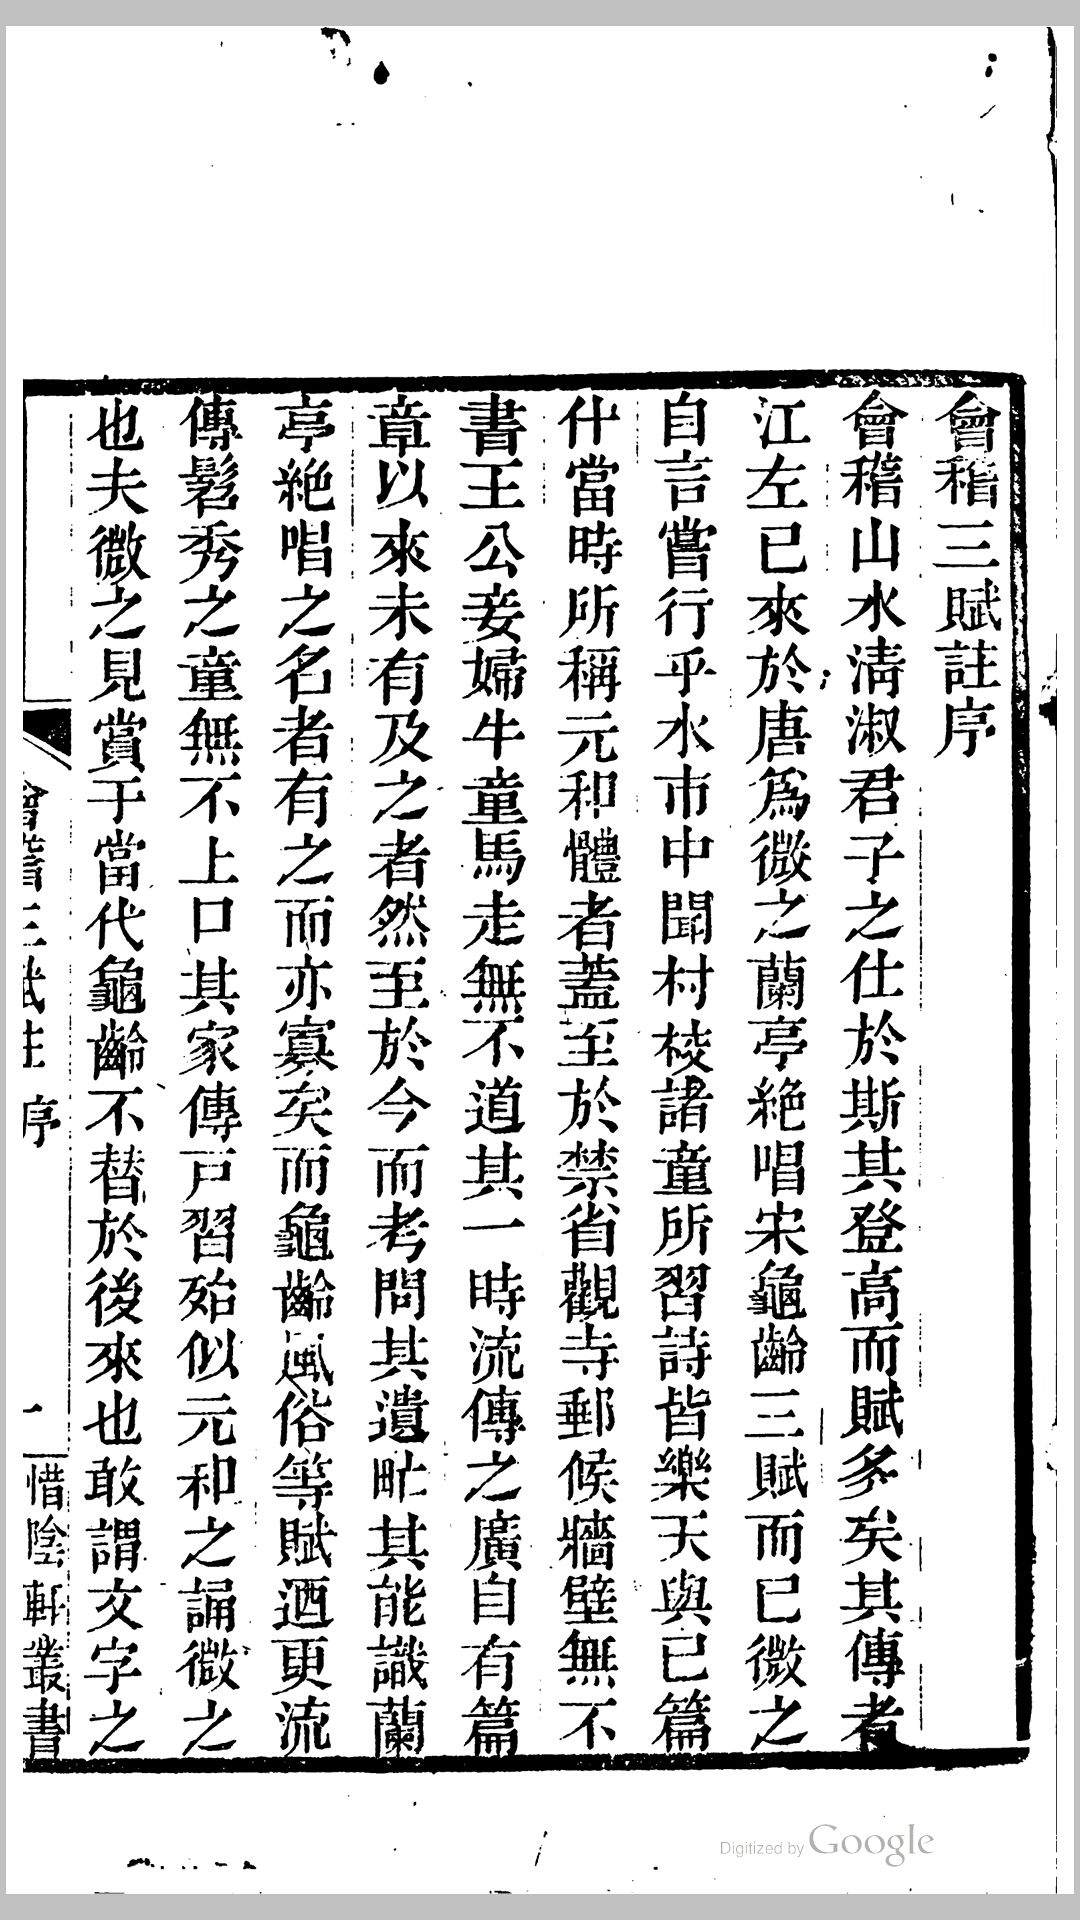 會稽三賦註序
會稽山水淸淑君子之仕於斯其登高而賦多矣其傳者
江左已來於唐爲微之蘭亭絶唱宋龜齡三賦而已微之
自言嘗行乎水市中聞村校諸童所習詩皆樂天與已篇
什當時所稱元和體者蓋至於禁省觀寺郵候牆壁無不
書王公妾婦牛童馬走無不道其一時流傳之廣自有篇
章以來未有及之者然至於今而考問其遺甿其能識蘭
亭絶唱之名者有之而亦寡矣而龜齡風俗等賦迺更流
傳髫秀之童無不上口其家傳戸習殆似元和之誦微之
也夫微之見賞于當代龜齡不替於後來也敢謂文字之
會稽三賦註 序 一 惜陰軒叢書
Digitized by Google